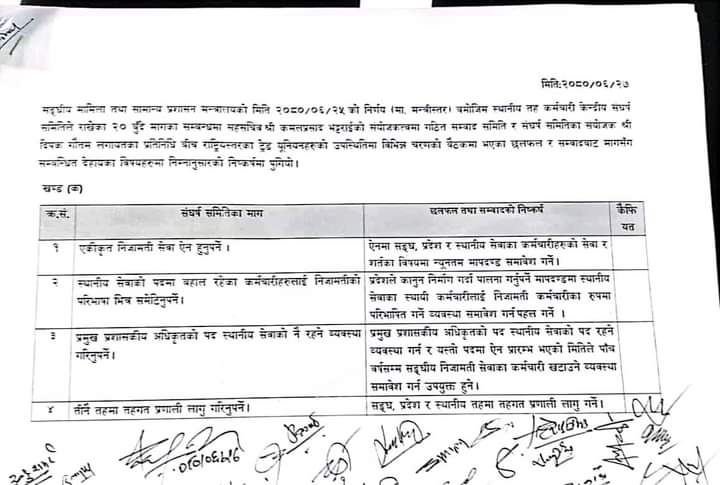 मितिः२०८०/०६/२७
सङ्घीय मामिला तथा सामान्य प्रशासन मन्त्रालयको मिति २०८०/०६/२५ को निर्णय (मा. मन्त्रीस्तर) बमोजिम स्थानीय तह कर्मचारी केन्द्रीय संघर्ष
समितिले राखेका २० बुँदे मागका सम्बन्धमा सहसचिव श्री कमलप्रसाद भट्टराईको संयोजकत्वमा गठित सम्वाद समिति र संघर्ष समितिका संयोजक श्री
दिपक गौतम लगायतका प्रतिनिधि बीच राष्ट्रियस्तरका ट्रेड यूनियनहरुको उपस्थितिमा विभिन्न चरणको बैठकमा भएका छलफल र सम्वादबाट मागसँग
सम्बन्धित देहायका विषयहरुमा निम्नानुसारको निष्कर्षमा पुगियो।
खण्ड (क)
क.सं. संघर्ष समितिका माग छलफल तथा सम्वादको निष्कर्ष कैफि
यत
१ एकीकृत निजामती सेवा ऐन हुनुपर्ने । ऐनमा सङ्घ, प्रदेश र स्थानीय सेवाका कर्मचारीहरुको सेवा र
शर्तका विषयमा न्यूनतम मापदण्ड समावेश गर्ने।
२ स्थानीय सेवाको पदमा बहाल रहेका कर्मचारीहरुलाई निजामतीको प्रदेशले कानुन निर्माण गर्दा पालना गर्नुपर्ने मापदण्डमा स्थानीय
परिभाषा भित्र समेटिनुपर्ने। सेवाका स्थायी कर्मचारीलाई निजामती कर्मचारीका रुपमा
परिभाषित गर्ने व्यवस्था समावेश गर्न पहल गर्ने ।
३ प्रमुख प्रशासकीय अधिकृतको पद स्थानीय सेवाको नै रहने व्यवस्था प्रमुख प्रशासकीय अधिकृतको पद स्थानीय सेवाको पद रहने
गरिनुपर्ने। व्यवस्था गर्न र यस्तो पदमा ऐन प्रारम्भ भएको मितिले पाँच
वर्षसम्म सङ्घीय निजामती सेवाका कर्मचारी खटाउने व्यवस्था
समावेश गर्न उपयुक्त हुने।
४ तीनै तहमा तहगत प्रणाली लागु गरिनुपर्ने। सङ्घ, प्रदेश र स्थानीय तहमा तहगत प्रणाली लागु गर्ने।